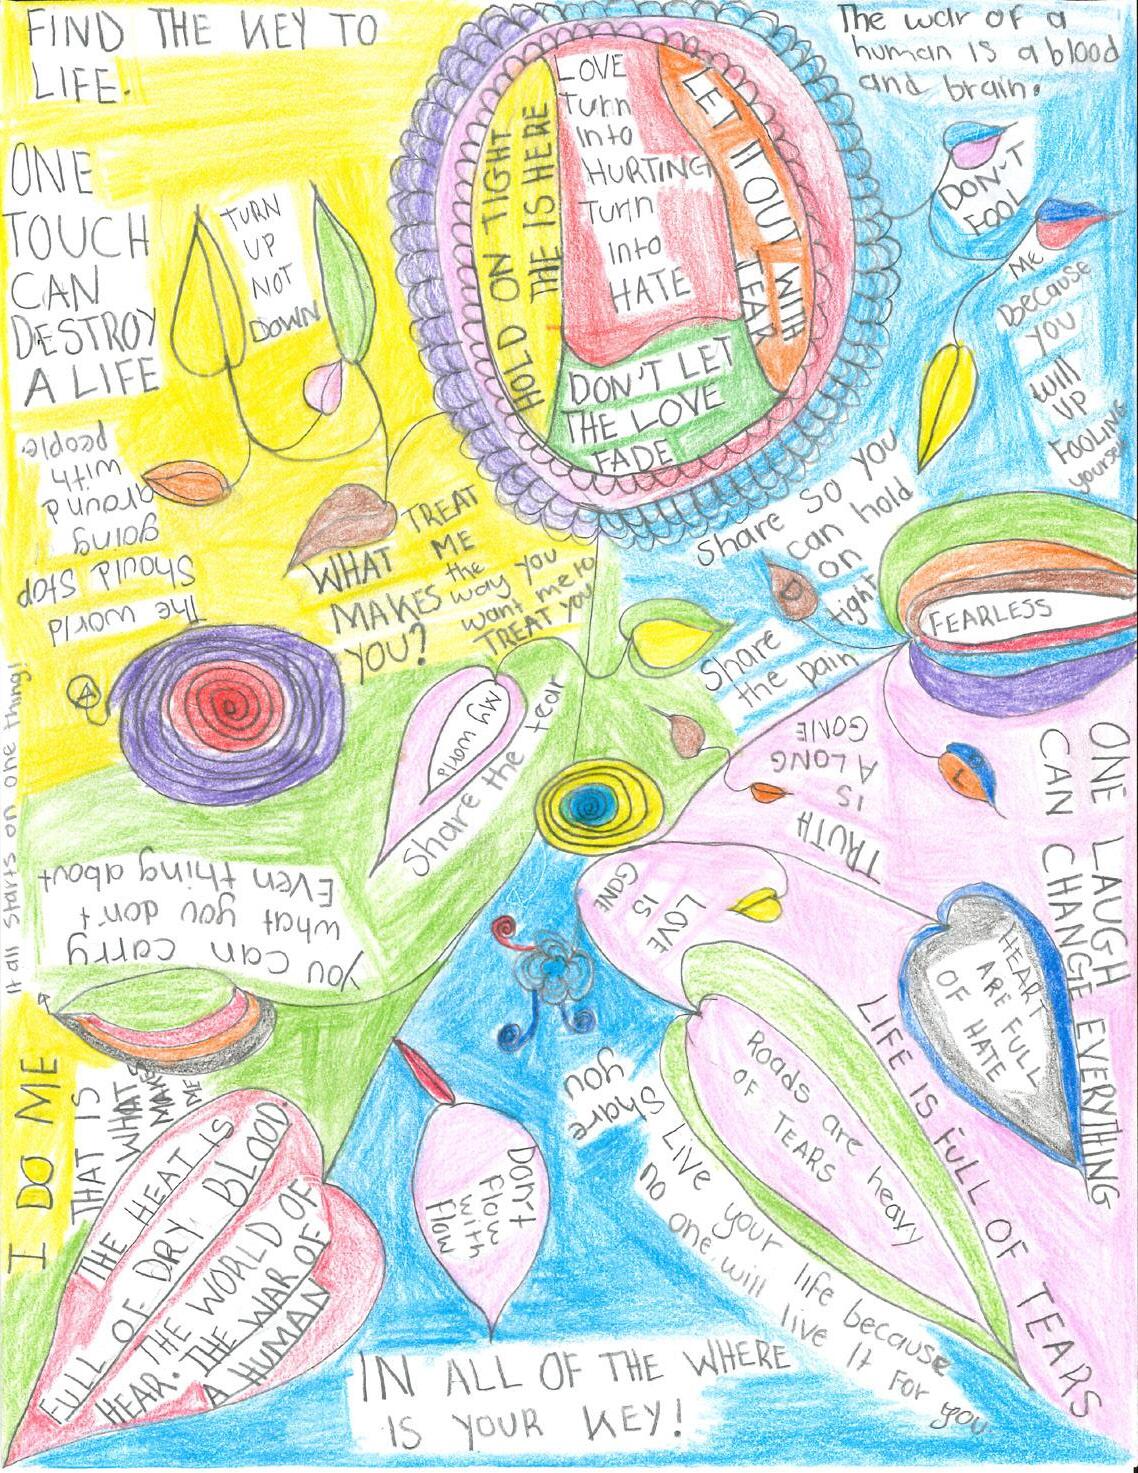 FIND THE KEY TO
LIFE.
ONE
TOUCH
CAN
DESTROY
A LIFE
TURN
UP
NOT
DOWN
HOLD ON TIGHT
THE IS HERE
LOVE
Turn
Into
HURTING
Turn
Into
HATE
LET IT OUT WITH
TEAR
DON'T LET
THE LOVE
FADE
The war of a
human is a blood
and brain.
DON'T
FOOL
ME
Because
you
will
UP
FOOLING
yourself
The world
Should Stop
going
around
with
people.
WHAT
MAKES
YOU?
TREAT
ME
the
way you
want me to
TREAT YOU
Share so you
can hold
on
tight
Share
the pain
D
FEARLESS
A
L
It all starts on one thing!!
MY world
Share the tear
TRUTH
IS
A LONG
GONE
LOVE
IS
GONE
ONE LAUGH
CAN CHANGE EVERYTHING
you can carry
what you don't
Even thing about
HEART
ARE FULL
OF HATE
LIFE IS FULL OF TEARS
Roads are heavy
OF TEARS
I DO ME
THAT IS
WHAT
MAKES
ME
THE HEAT IS
FULL OF DRY BLOOD.
HEAR. THE WORLD OF
THE WAR OF
A HUMAN
Don't
Flow
with
Flow
you
Share
Live your life because
no one will live It For
you
IN ALL OF THE WHERE
IS YOUR KEY!